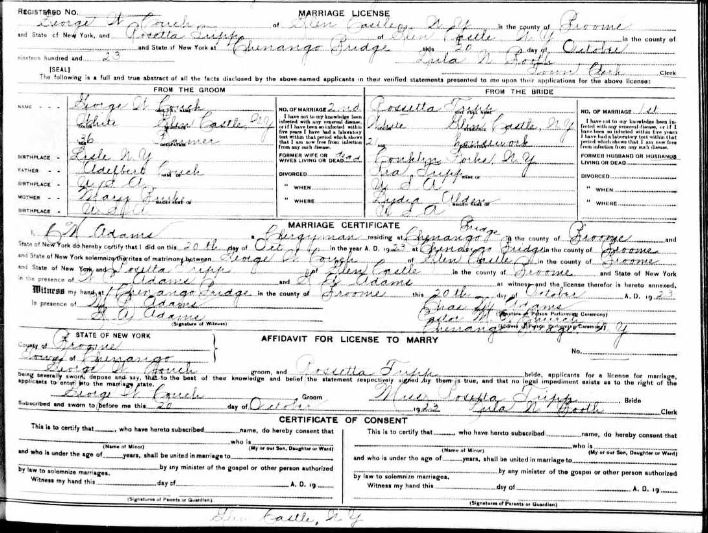 REGISTERED No. MARRIAGE LICENSE
George W. Couch of Glen Castle, N.Y. in the county of Broome
and State of New York, and Rosetta Tripp of Glen Castle N.Y. in the county of
and State of New York at Chenango Bridge this 20 day of October
nineteen hundred and 23 Lula N. Booth
[SEAL] Town Clerk
The following is a full and true abstract of all the facts disclosed by the above-named applicants in their verified statements presented to me upon their applications for the above license:
FROM THE GROOM FROM THE BRIDE
NAME George W. Couch NO. OF MARRIAGE 2nd Rossetta Tripp NO. OF MARRIAGE 1st
White Glen Castle, N.Y. I have not to my knowledge been infected with any venereal disease, or if I have been so infected within five years I have had a laboratory test within that period which shows that I am now free from infection from any such disease. White Glen Castle, N.Y.
26 Farmer housework
BIRTHPLACE Lisle, N.Y. FORMER WIFE OR WIVES LIVING OR DEAD Dead Conklin Forks, N.Y. FORMER HUSBAND OR HUSBANDS LIVING OR DEAD
FATHER Adelbert Couch DIVORCED Ira Tripp DIVORCED
BIRTHPLACE U.S.A. " WHEN U.S.A. " WHEN
MOTHER Mary " WHERE Lydia Alden " WHERE
BIRTHPLACE U.S.A. U.S.A.
MARRIAGE CERTIFICATE
I, Adams Clergyman residing at Chenango Bridge in the county of Broome and
State of New York do hereby certify that I did on this 20th day of Oct. in the year A. D. 1923 at Chenango Bridge in the county of Broome
and State of New York solemnize the rites of matrimony between George W. Couch of Glen Castle in the county of Broome
and State of New York and Rosetta Tripp of Glen Castle in the county of Broome and State of New York
in the presence of Adams and Adams as witness and the license therefor is hereto annexed.
Witness my hand at Chenango Bridge in the county of Broome this 20th day of October A. D. 1923
In presence of Adams Chas. Adams
Adams (Signature of Person Performing Ceremony)
(Signature of Witness) Chenango Bridge N Y
STATE OF NEW YORK AFFIDAVIT FOR LICENSE TO MARRY
County of Broome No.
Town of Chenango
George W. Couch groom, and Rossetta Tripp bride, applicants for a license for marriage,
being severally sworn, depose and say, that to the best of their knowledge and belief the statement respectively signed by them is true, and that no legal impediment exists as to the right of the
applicants to enter into the marriage state.
George W. Couch Groom Miss Rosetta Tripp Bride
Subscribed and sworn to before me this 20 day of October 1923 Lula N. Booth Clerk
CERTIFICATE OF CONSENT
This is to certify that who have hereto subscribed name, do hereby consent This is to certify that who have hereto subscribed name, do hereby consent
that who is that who is
(Name of Minor) (My or our Son, Daughter or Ward) (Name of Minor) (My or our Son, Daughter or Ward)
and who is under the age of years, shall be united in marriage to and who is under the age of years, shall be united in marriage to
by any minister of the gospel or other person authorized by any minister of the gospel or other person authorized
by law to solemnize marriages. by law to solemnize marriages.
Witness my hand this day of A. D. 19 Witness my hand this day of A. D. 19
(Signatures of Parents or Guardian) (Signatures of Parents or Guardian)
Glen Castle, N.Y.